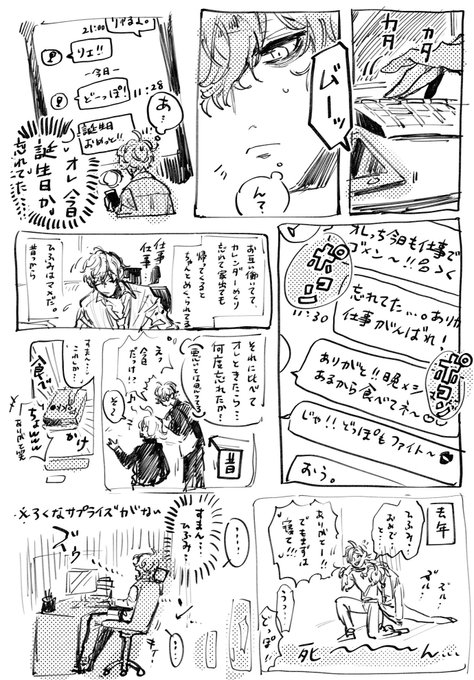 カタ
カタ
ブーッ
んて?
りょすん。
21:00
リェ!!
ー今日ー
どーっぽ!
11:28
誕生日
おめっと!!
あ?
オレ今日
誕生日か。
忘れてた…
オレっち今日も仕事で
ゴメン〜!!
ポコン
忘れてた…。ありが
仕事がんばれ!
11:30
ポコン
ありがと!!晩メシ
あるから食べてネ〜
じゃ!!どっぽもファイト〜
おう。
お互い働いてて、
カレンダーめくり
忘れて家出ても
帰ってくると
ちゃんとめくってある
仕事
仕事
ひふみはマメだ。
昔っから
それに比べて
オレときたら…
何度忘れたか?
(悪いとは思ってる)
昔
えっ
今日
だっけ!?
そ〜
すまん…
これしか…
食べて
かけ
ちょwww
去年
ひふみ…
おめで…
と…
ありがと〜!!
でもまずは
寝て!!!
ズル…
ズル…
うっ…
どっぽ!!
死〜ん…
…。
すまん…
ひふみ…
※ろくなサプライズがない
ズウ
…